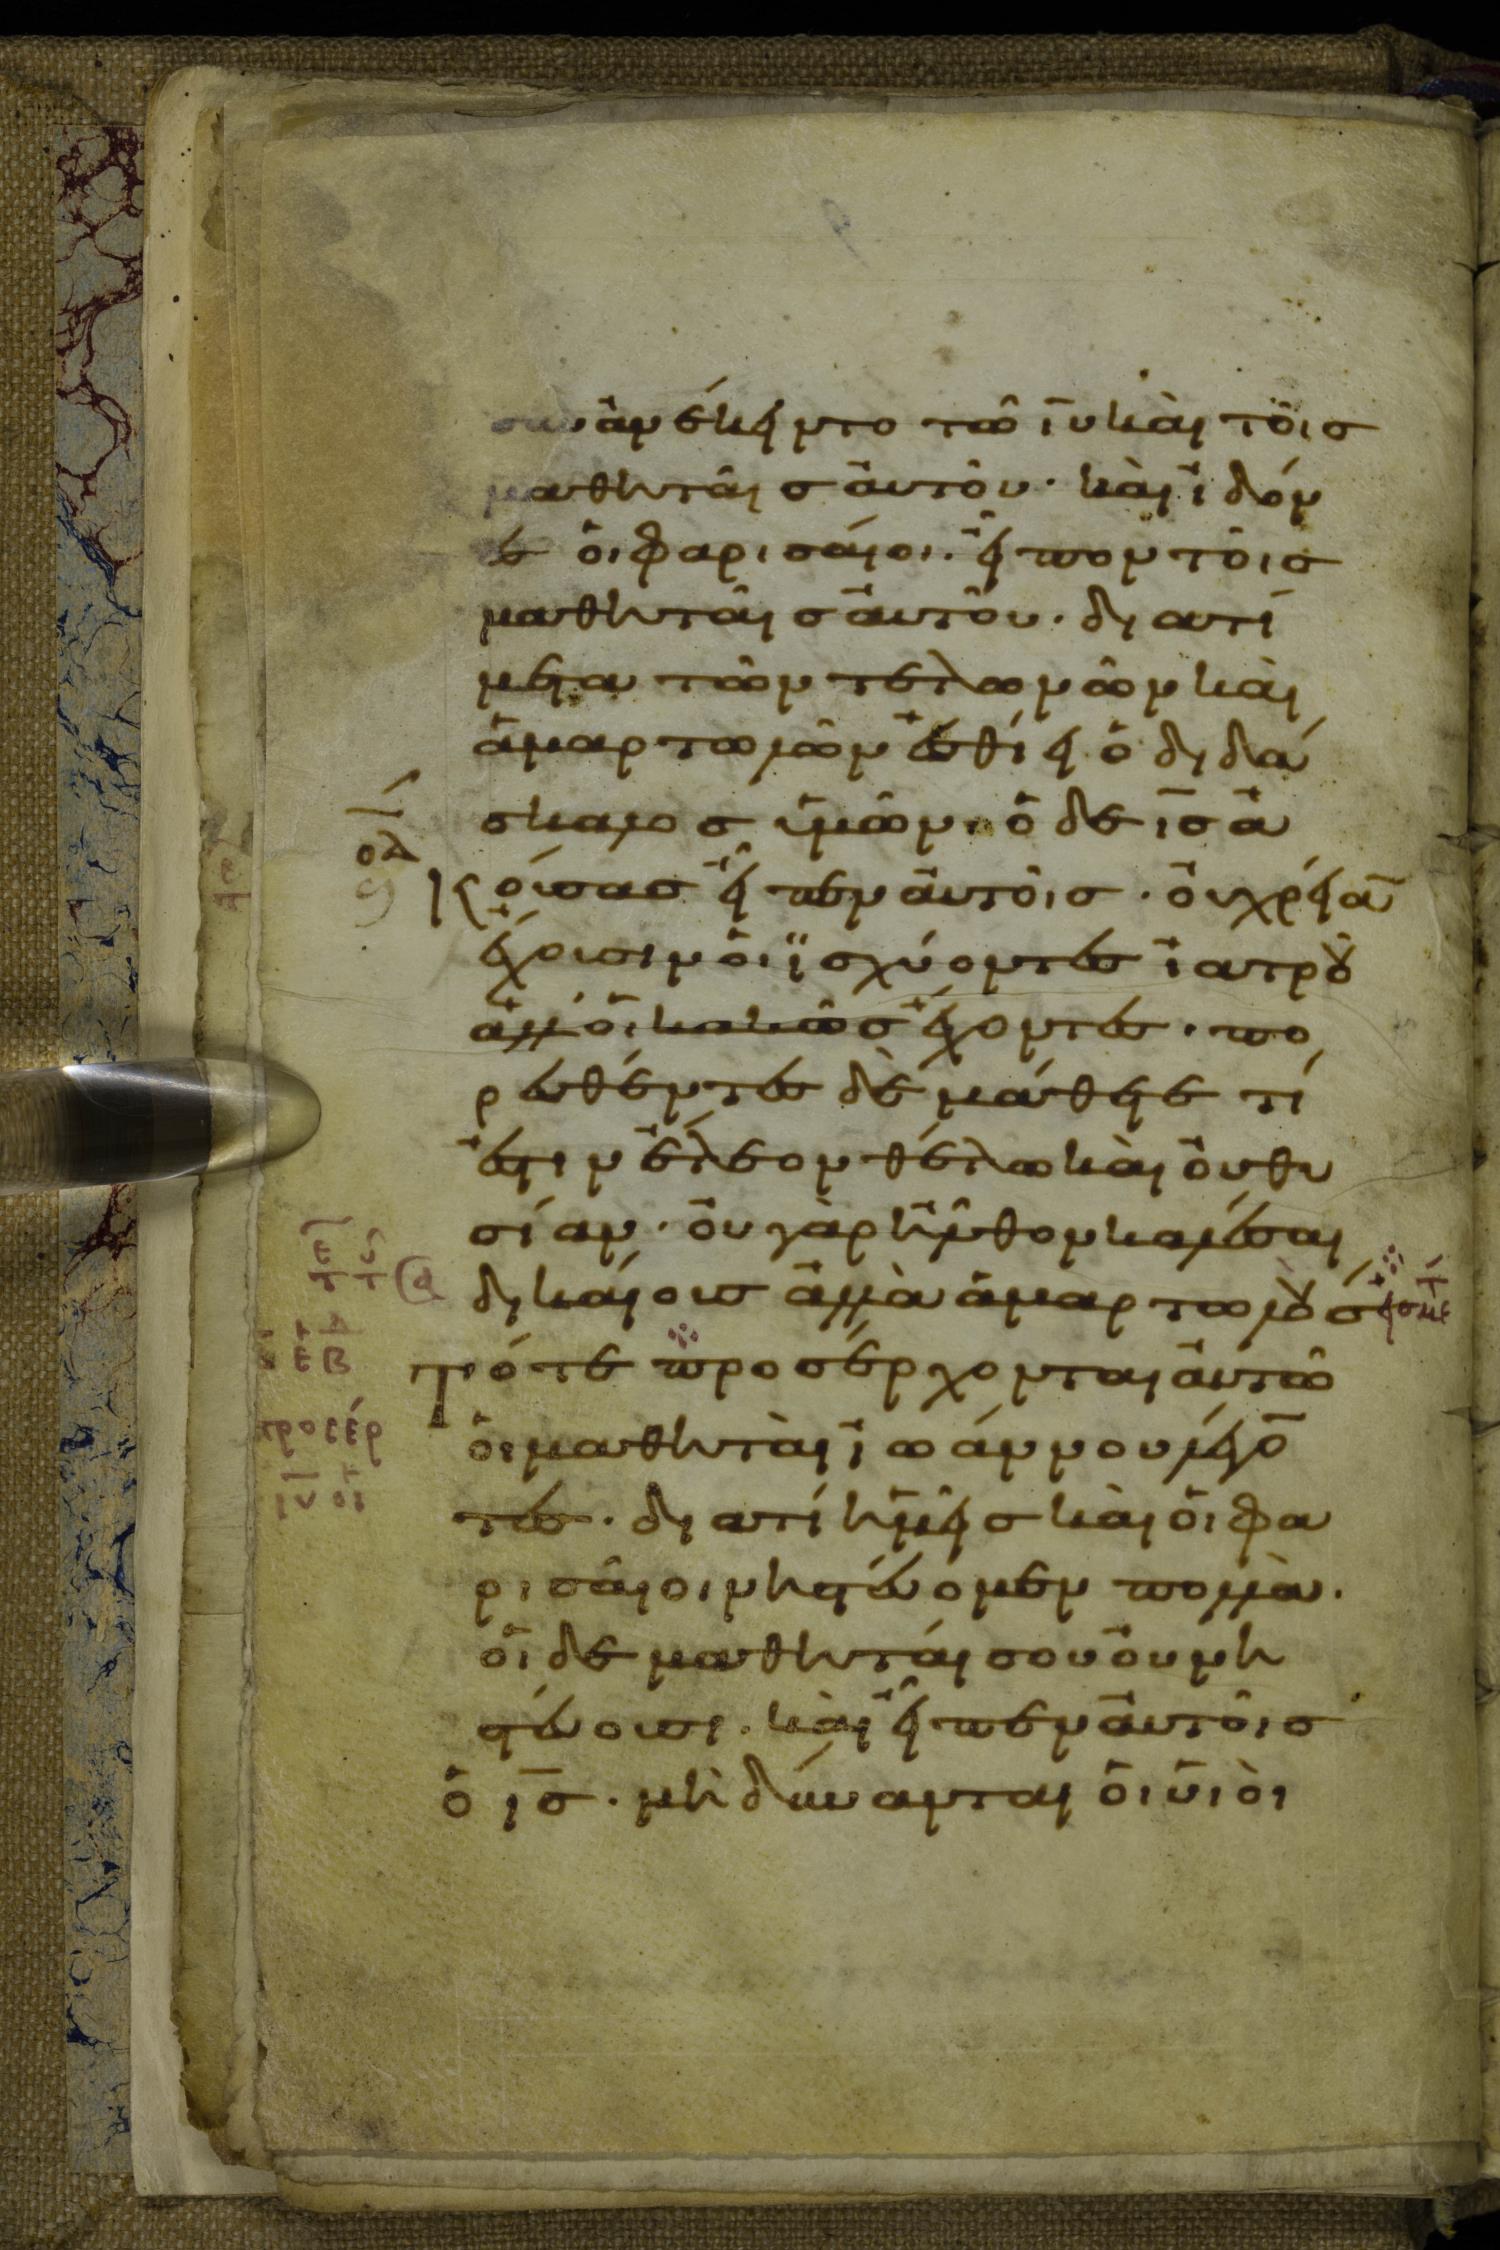 συνἀνέκειντο τῶ ιυ καὶ τοῖσ
μαθηταῖσ ἀυτοῦ· καὶ ἰδόν
τεσ ὁι φαρισάιοι· εἶπον τοῖσ
μαθηταῖσ ἀυτοῦ· διατί
μετα τῶν τελωνῶν καὶ
ἁμαρτωλῶν ἐσθίει ὁ διδά
σκαλοσ ὑμῶν· ὁ δε ισ ἀ
κούσασ εἶπεν ἀυτοῖσ· ὀυ χρεία
ἔχουσιν ὁι ἰσχύοντεσ ἰατροῦ
ἀλλ' ὁι κακῶσ ἔχοντεσ· πο
ρευθέντεσ δὲ μάθετε τί
ἐστιν ἔλεον θέλω καὶ ὀυ θυ
σίαν· ὀυ γὰρ ἦλθον καλέσαι
δικάιουσ ἀλλὰ ἁμαρτωλούσ
Τότε προσέρχονται ἀυτῶ
ὁι μαθηταὶ ιωάννου λέγο
τεσ· διατί ἡμεῖσ καὶ ὁι φα
ρισαῖοι νηστέυομεν πολλὰ·
ὁι δε μαθητάι σου ὀυ νη
στέυουσι· καὶ εἶπεν ἀυτοῖσ
ὁ ισ· μὴ δύνανται ὁι ὑιὸι